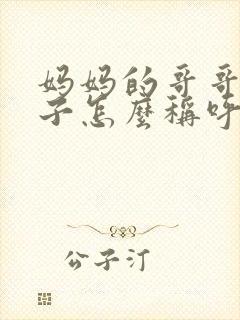 妈妈的哥哥
子怎麼稱呼
公子汀